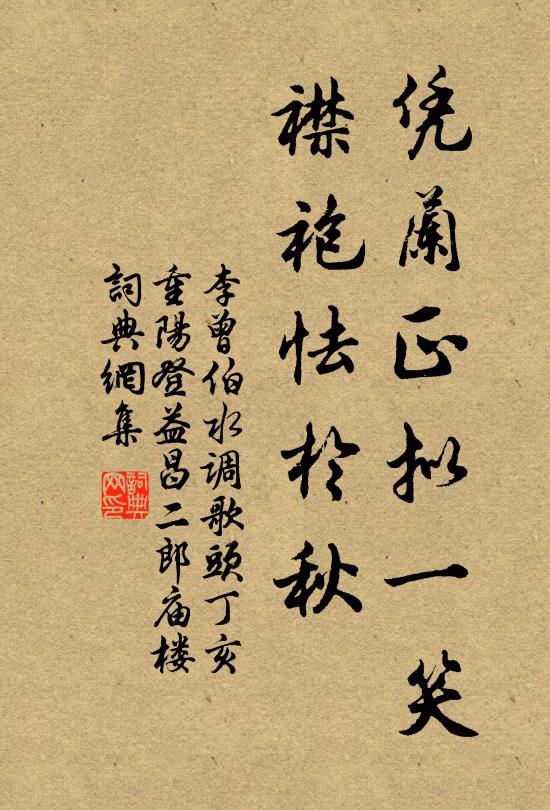 凭阑正拟一笑
襟袍怯於秋
李曾伯水调歌頭丁亥
重陽登益昌二郎庙楼
詞典網集
詞典网印